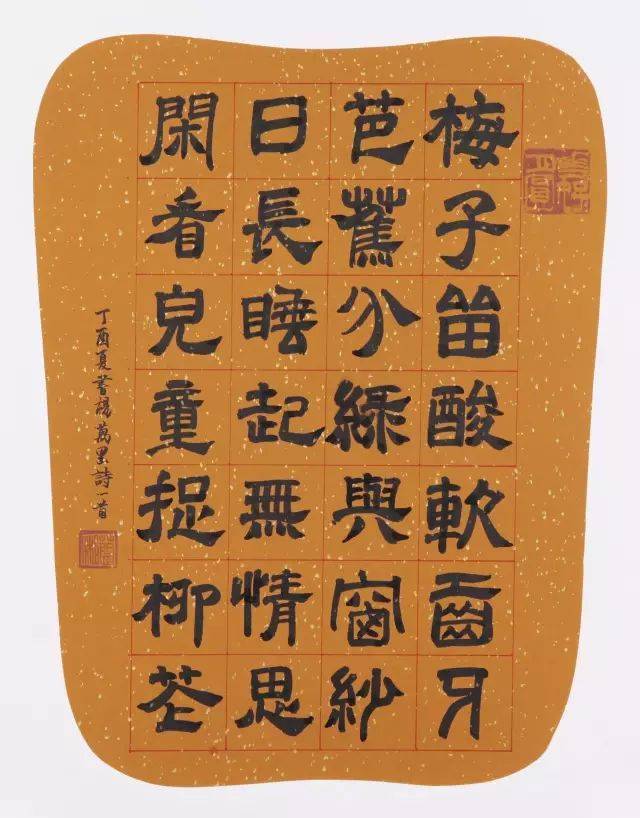 梅子留酸軟齒牙
芭蕉分綠與窗紗
日長睡起無情思
閑看兒童捉柳花
丁酉夏書楊萬里詩一首